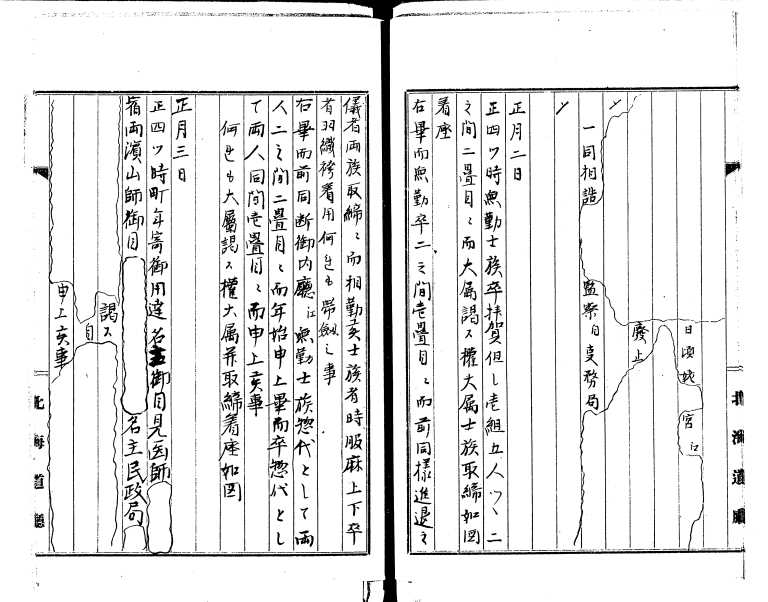 日頃城
宮江
廃止
一同相詰
監察自史務局
正月二日
正四ツ時無勤士族卒拝賀但し壱組五人ツヽ二
之間二畳目ニ而大属謁ス権大属士族取締如図
着座
右畢而無勤卒二之間壱畳目ニ而前同様進退之
北海道廳
儀者両族取締ニ而相勤亥士族者時服麻上下卒
者羽織袴着用何せも帯劔之事
右畢而前同断御内廳江無勤士族惣代として両
人二之間二畳目ニ而年始申上畢而卒惣代とし
て両人同間壱畳目ニ而申上亥事
何せも大屬謁ス權大属并取締着座如図
正月三日
正四ツ時町年寄御用達名主御目見医師
宿両濱山師御目
名主民政局
謁ス
目
申上亥事
北海道廳